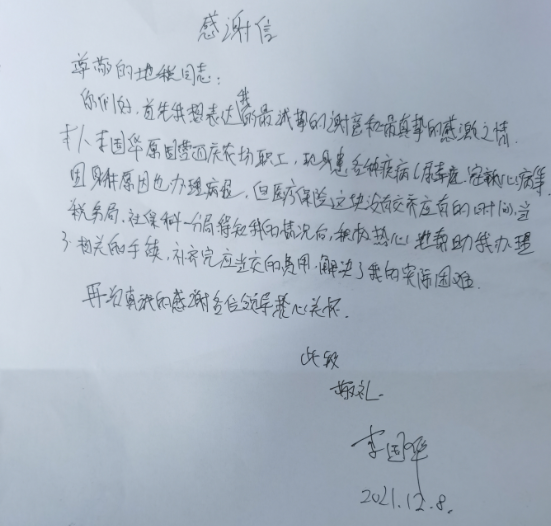 感谢信
尊敬的地税同志：
你们好，首先我想表达我的最诚挚的谢意和最真挚的感激之情。
本人李国华原国营西庆农场职工，现身患多种疾病（尿毒症、冠状心病等
因身体原因也办理病退，但医疗保险这块没有交齐应有的时间，当
税务局、社保科一分局得知我的情况后，积极热心地帮助我办理
了相关的手续，补交完应当交的费用，解决了我的实际困难。
再次真诚的感谢各位领导热心关怀。
此致
敬礼
李国华
2021.12.8.